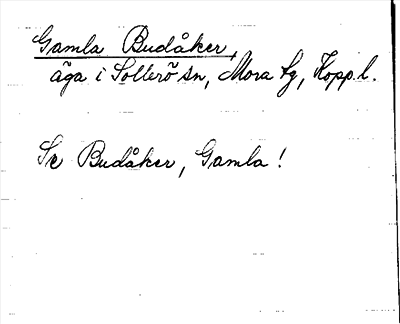 Gamla Budåker,
äga i Sollerö sn, Mora tg, Kopp.l.
Se Budåker, Gamla!